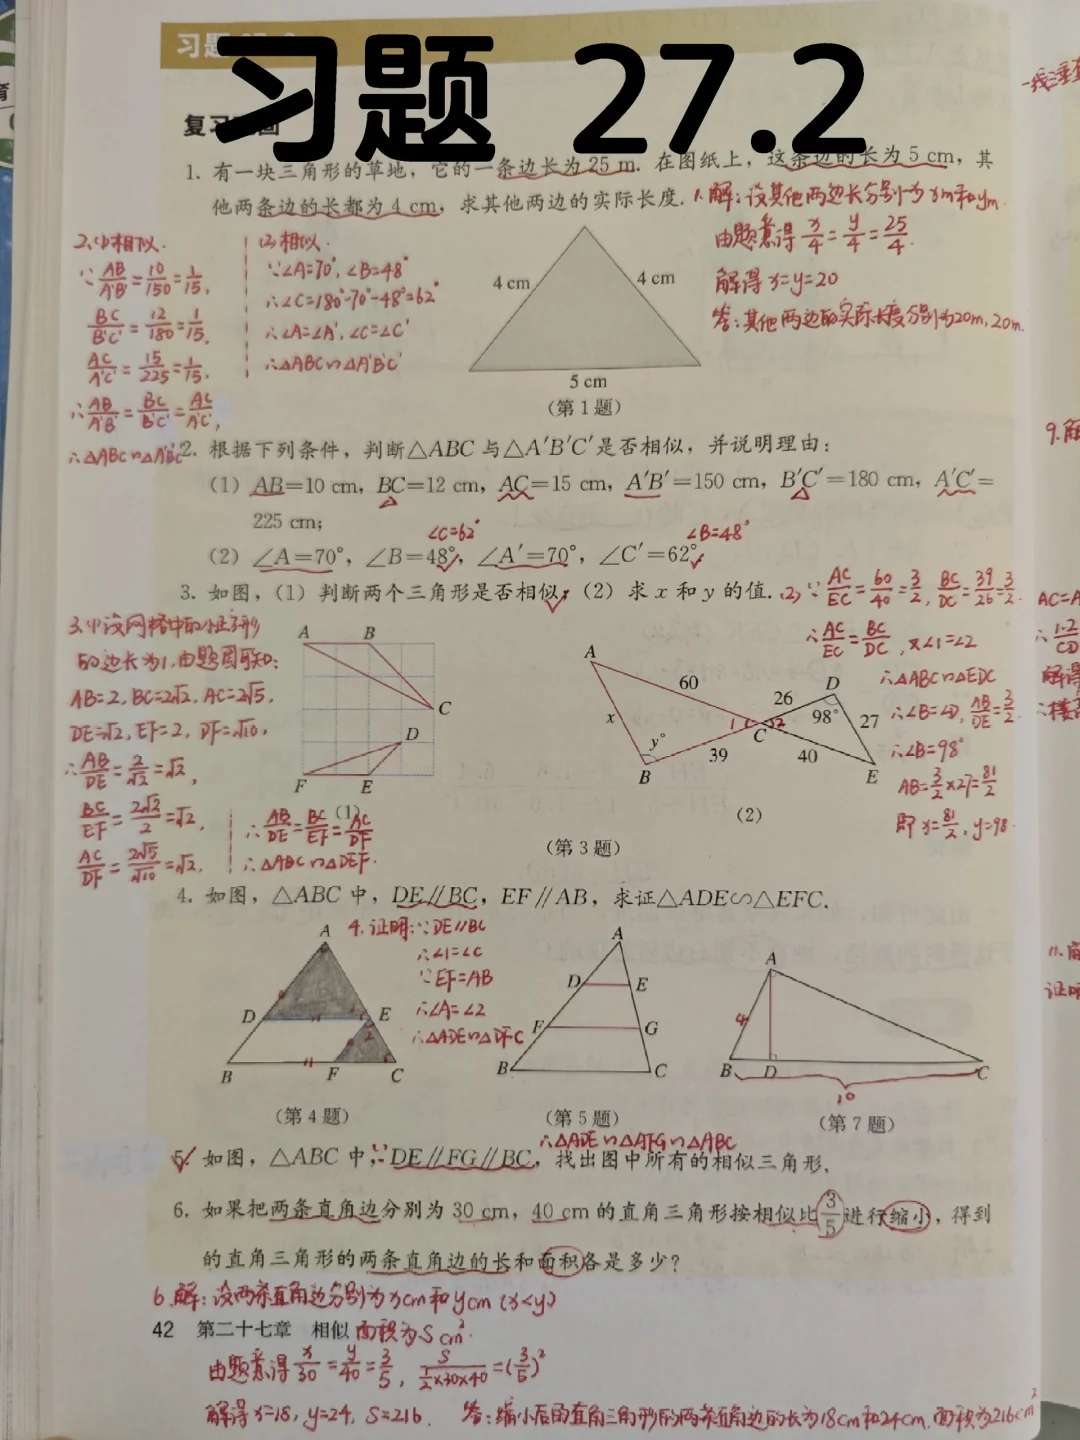 习题 27.2
1. 有一块三角形的草地，它的一条边长为25 m. 在图纸上，这条边的长为5 cm，其
他两条边的长都为4 cm，求其他两边的实际长度.
1.解：设其他两边长分别为xm和ym.
由题意得 x/4=y/4=25/4.
解得x=y=20
答：其他两边的实际长度分别为20m,20m.
2.(1)相似.
∵AB/A'B'=10/150=1/15,
BC/B'C'=12/180=1/15,
AC/A'C'=15/225=1/15.
∴AB/A'B'=BC/B'C'=AC/A'C',
∴△ABC∽△A'B'C'
(2)相似.
∵∠A=70°,∠B=48°
∴∠C=180°-70°-48°=62°
∴∠A=∠A',∠C=∠C'
∴△ABC∽△A'B'C'
4 cm
4 cm
5 cm
（第1题）
2. 根据下列条件，判断△ABC与△A′B′C′是否相似，并说明理由：
（1）AB=10 cm，BC=12 cm，AC=15 cm，A′B′=150 cm，B′C′=180 cm，A′C′=
225 cm；
∠C=62° ∠B=48°
（2）∠A=70°，∠B=48°，∠A′=70°，∠C′=62°.
3. 如图，（1）判断两个三角形是否相似；（2）求 x 和 y 的值.
(2)∵AC/EC=60/40=3/2, BC/DC=39/26=3/2.
∴AC/EC=BC/DC,又∠1=∠2
∴△ABC∽△EDC
∴∠B=∠D,AB/DE=3/2.
∴∠B=98°
AB=3/2×27=81/2
即 x=81/2,y=98.
3.(1)设网格中的小正方形
的边长为1,由题图可知:
AB=2,BC=2√2,AC=2√5,
DE=√2,EF=2,DF=√10,
∴AB/DE=2/√2=√2,
BC/EF=2√2/2=√2,
AC/DF=2√5/√10=√2.
∴AB/DE=BC/EF=AC/DF
∴△ABC∽△DEF.
A B C D E F
（1）
A 60 26 D x 1 C 2 98° 27 y° 39 40 B E
（2）
（第3题）
4. 如图，△ABC中，DE∥BC，EF∥AB，求证△ADE∽△EFC.
4.证明:∵DE∥BC
∴∠1=∠C
∵EF=AB
∴∠A=∠2
∴△ADE∽△DFC
A D E B F C
（第4题）
A D E F G B C
（第5题）
A 4 B D C 10
（第7题）
∴△ADE∽△AFG∽△ABC
5. 如图，△ABC中，∵DE∥FG∥BC，找出图中所有的相似三角形.
6. 如果把两条直角边分别为30 cm，40 cm的直角三角形按相似比3/5进行缩小，得到
的直角三角形的两条直角边的长和面积各是多少？
6.解：设两条直角边分别为xcm和ycm (x<y)
42 第二十七章 相似
面积为S cm².
由题意得x/30=y/40=3/5, S/(1/2×30×40)=(3/5)²
解得x=18,y=24,S=216.
答：缩小后的直角三角形的两条直角边的长为18cm和24cm,面积为216cm²
9.解